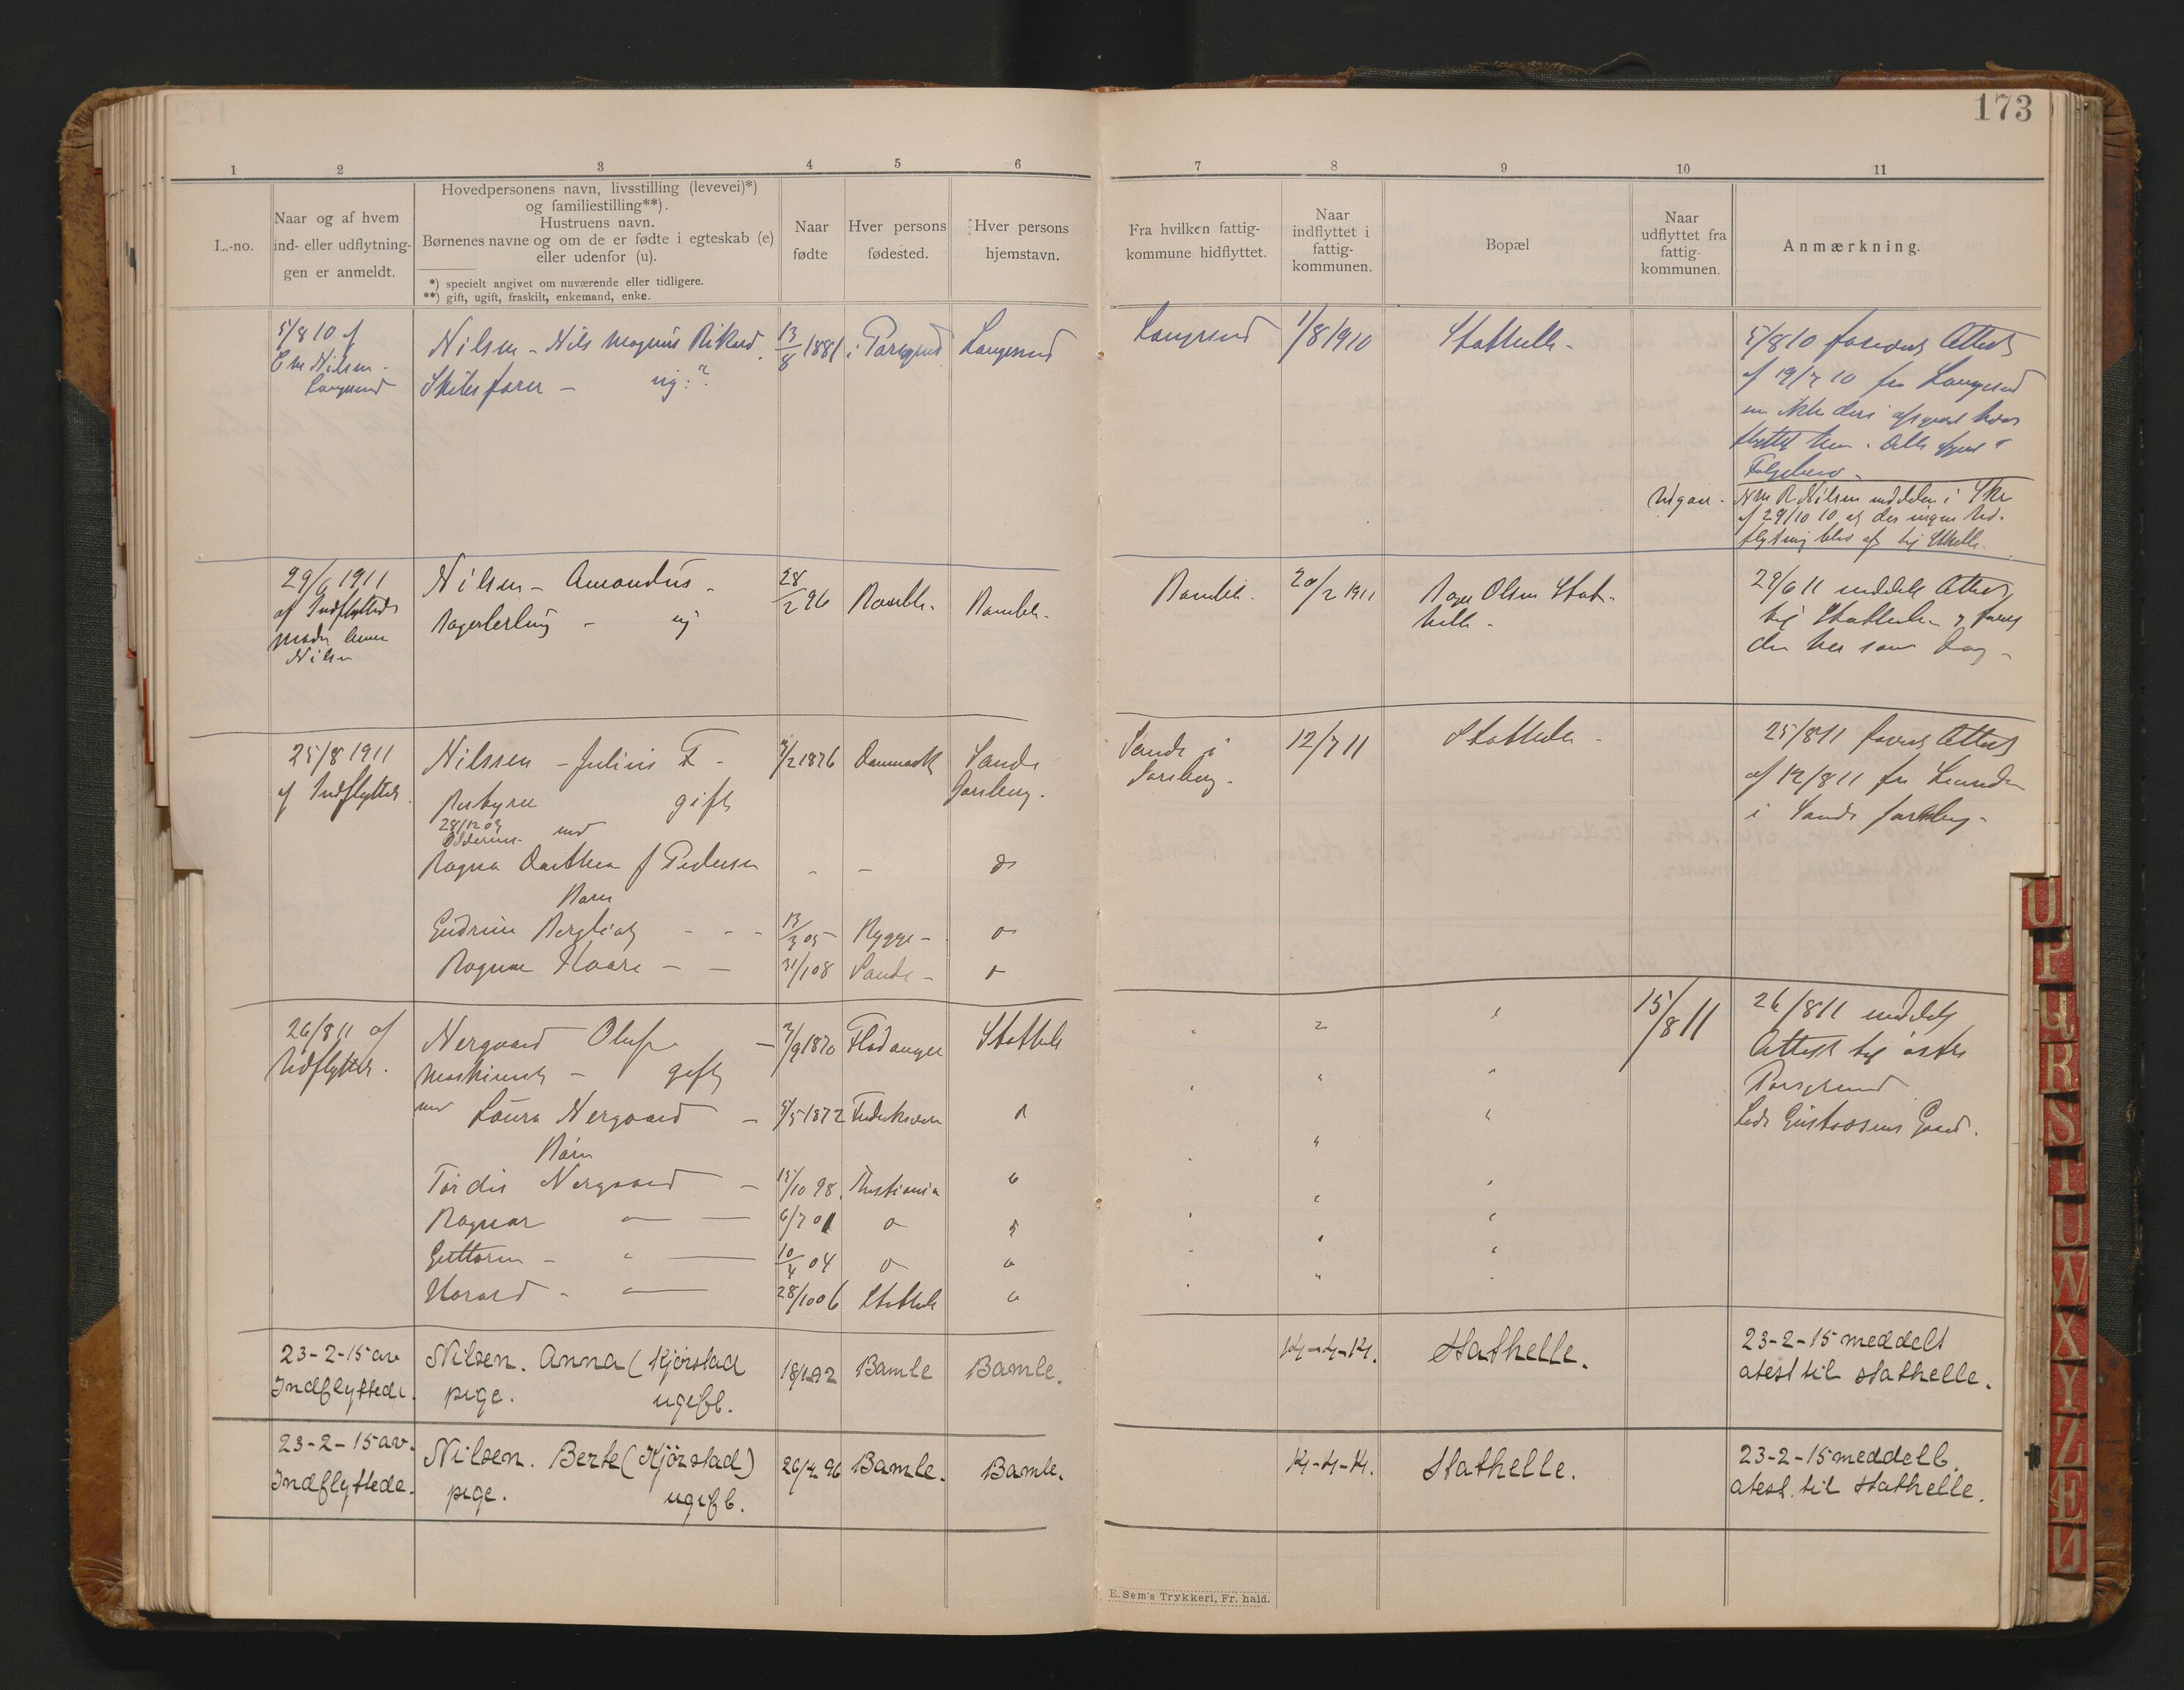 173
1 2 3 4 5 6 7 8 9 10 11
L.-no.
Naar og af hvem
ind- eller udflytnin-
gen er anmeldt.
Hovedpersonens navn, livsstilling (levevei)*)
og familiestilling**).
Hustruens navn.
Børnenes navne og om de er fødte i egteskab (e)
eller udenfor (u).
*) specielt angivet om nuværende eller tidligere.
**) gift, ugift, fraskilt, enkemand, enke.
Naar
fødte
Hver persons
fødested.
Hver persons
hjemstavn.
Fra hvilken fattig-
kommune hidflyttet.
Naar
indflyttet i
fattig-
kommunen.
Bopæl
Naar
udflyttet fra
fattig-
kommunen.
Anmærkning.
5/8 10 af
Em Nilsen -
Langesund
Nilsen - Nils Magnus Rikard.
Skibsfører - ug: ?
13/8 1881
i Porsgrund
Langesund
Langesund
1/8 1910
Stathelle -
5/8 10 forevist Attest
af 19/7 10 fra Langesund
flyttet hen.
Udgaar -
N M R Nilsen meddeler i Skr
af 29/10 10 at der ingen Ud-
flytning blev af til Sthelle.
29/6 1911
af Indflyttedes
Moder
Nilsen
Nilsen - Amandus -
Bagerlerling - ug
28/2 96
Bamble -
Bamble -
Bamble -
20/2 1911
Bager Olsen Stat-
helle -
29/6 11 meddelt Attest
til Stathelle
den her som
25/8 1911
af Indflyttede.
Nilssen - Julius F -
Bestyrer gift
med
Ragna Dorthea f Pedersen
Barn
Gudrun Bergliot - - -
Ragnar Kaare - -
7/2 1876
Danmark
Sande
Jarlsberg.
13/3 05 -
Rygge -
31/1 08
Sande -
Sande i
Jarlsberg -
12/7 11
Stathelle -
25/8 11 forevist Attest
af 12/8 11 fra
i Sande Jarlsberg -
26/8 11 af
Udflyttede.
Nergaard Oluf -
Maskinist - gift
med Laura Nergaard -
Barn
Tordis Nergaard -
Ragnar
Guttorm -
Harald -
7/9 1870
Stathelle
5/5 1872
Frederiksværn
15/10 98.
Kristiania
6/7 01
10/4 04
28/10 06
Stathelle
15/8 11
26/8 11 meddelt
Attest til østre
Porsgrund
Gustavsens Gaard.
23-2-15 av
Indflyttede.
Nilsen. Anna (Kjørstad
pige. ugift.
Bamle
Bamle.
14-4-14.
Stathelle.
23-2-15 meddelt
atest til stathelle.
23-2-15 av.
Indflyttede.
Nilsen. Berte (Kjørstad)
pige. ugift.
26/4 96
Bamle.
Bamle.
14-4-14.
Stathelle.
23-2-15 meddelt.
atest. til stathelle.
E. Sem's Trykkeri, Fr. hald.
U
P
Q
R
S
T
U
W
X
Y
Z
Æ